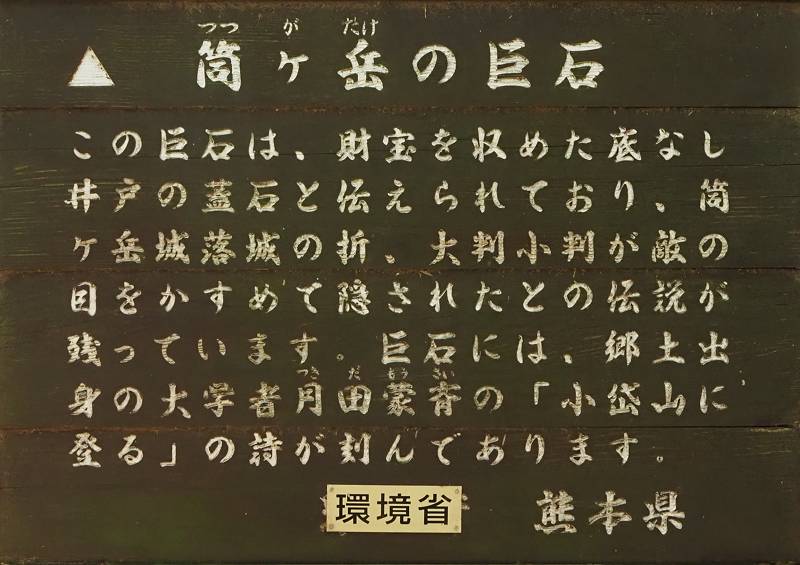 つつ が だけ
筒ヶ岳の巨石
この巨石は、財宝を収めた底なし
井戸の蓋石と伝えられており、筒
ヶ岳城落城の折、大判小判が敵の
目をかすめて隠されたとの伝説が
残っています。巨石には、郷土出
つき だ もう さい
身の大学者月田蒙斉の「小岱山に
登る」の詩が刻んであります。
環境省 熊本県